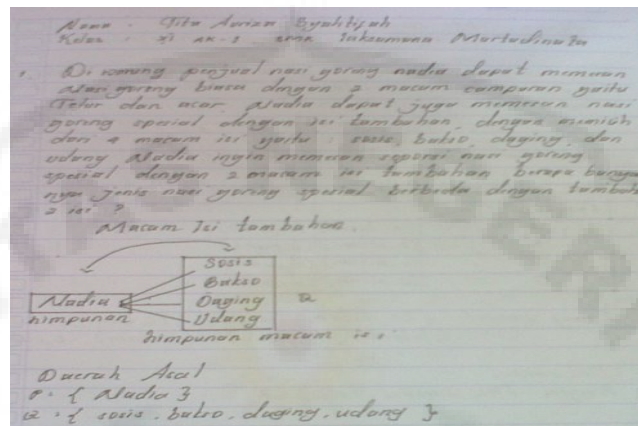 Nama : Tita Auriza Syahtijah
Kelas : XI AK-1 SMK Laksamana Martadinata
1. Di warung penjual nasi goreng nadia dapat memesan
Nasi goreng biasa dengan 2 macam campuran yaitu
Telur dan acar. Nadia dapat juga memesan nasi
goreng spesial dengan isi tambahan dengan memilih
dari 4 macam isi yaitu : sosis, bakso, daging, dan
udang Nadia ingin memesan seporsi nasi goreng
spesial dengan 2 macam isi tambahan berapa banyak
nya jenis nasi goreng spesial berbeda dengan tambah
2 isi ?
Macam Isi tambahan
Sosis
Bakso
Nadia Daging
himpunan Udang
himpunan macam isi
Daerah Asal
= { Nadia }
= { sosis . bakso . daging . udang }